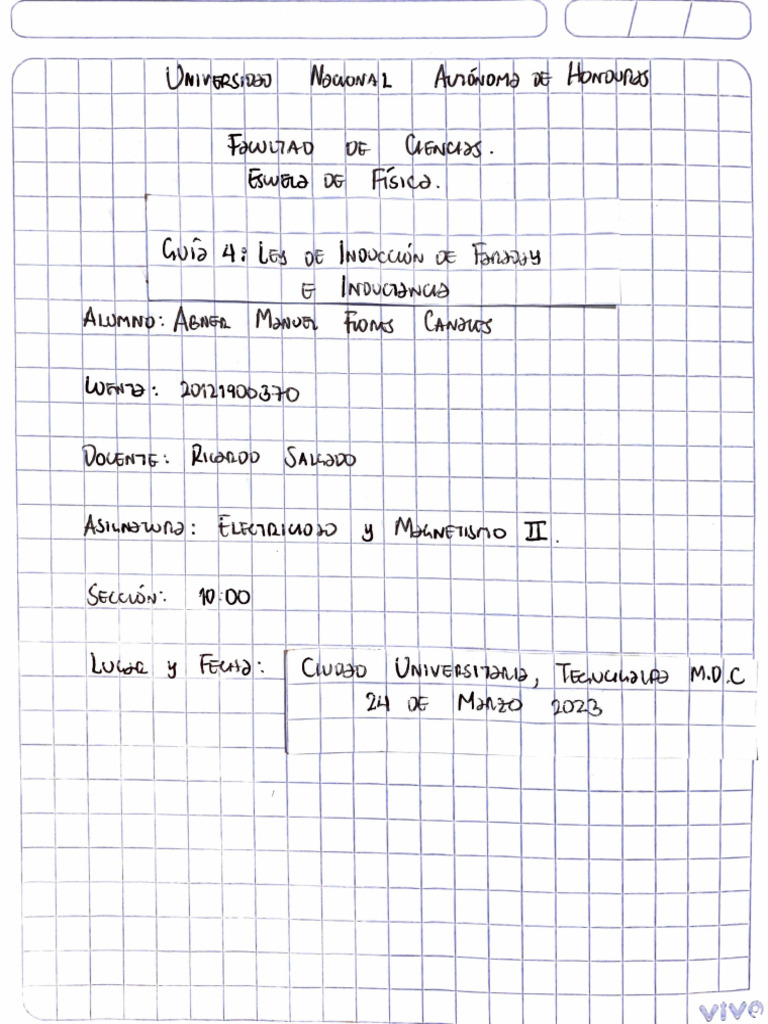 Universidad Nacional Autónoma de Honduras
Facultad de Ciencias.
Escuela de Física.
Guía 4: Ley de Inducción de Faraday
e Inductancia
Alumno: Abner Manuel Flores Canales
Cuenta: 20121900370
Docente: Ricardo Salgado
Asignatura: Electricidad y Magnetismo II.
Sección: 10:00
Lugar y Fecha: Ciudad Universitaria, Tegucigalpa M.D.C
24 de Marzo 2023
vivo